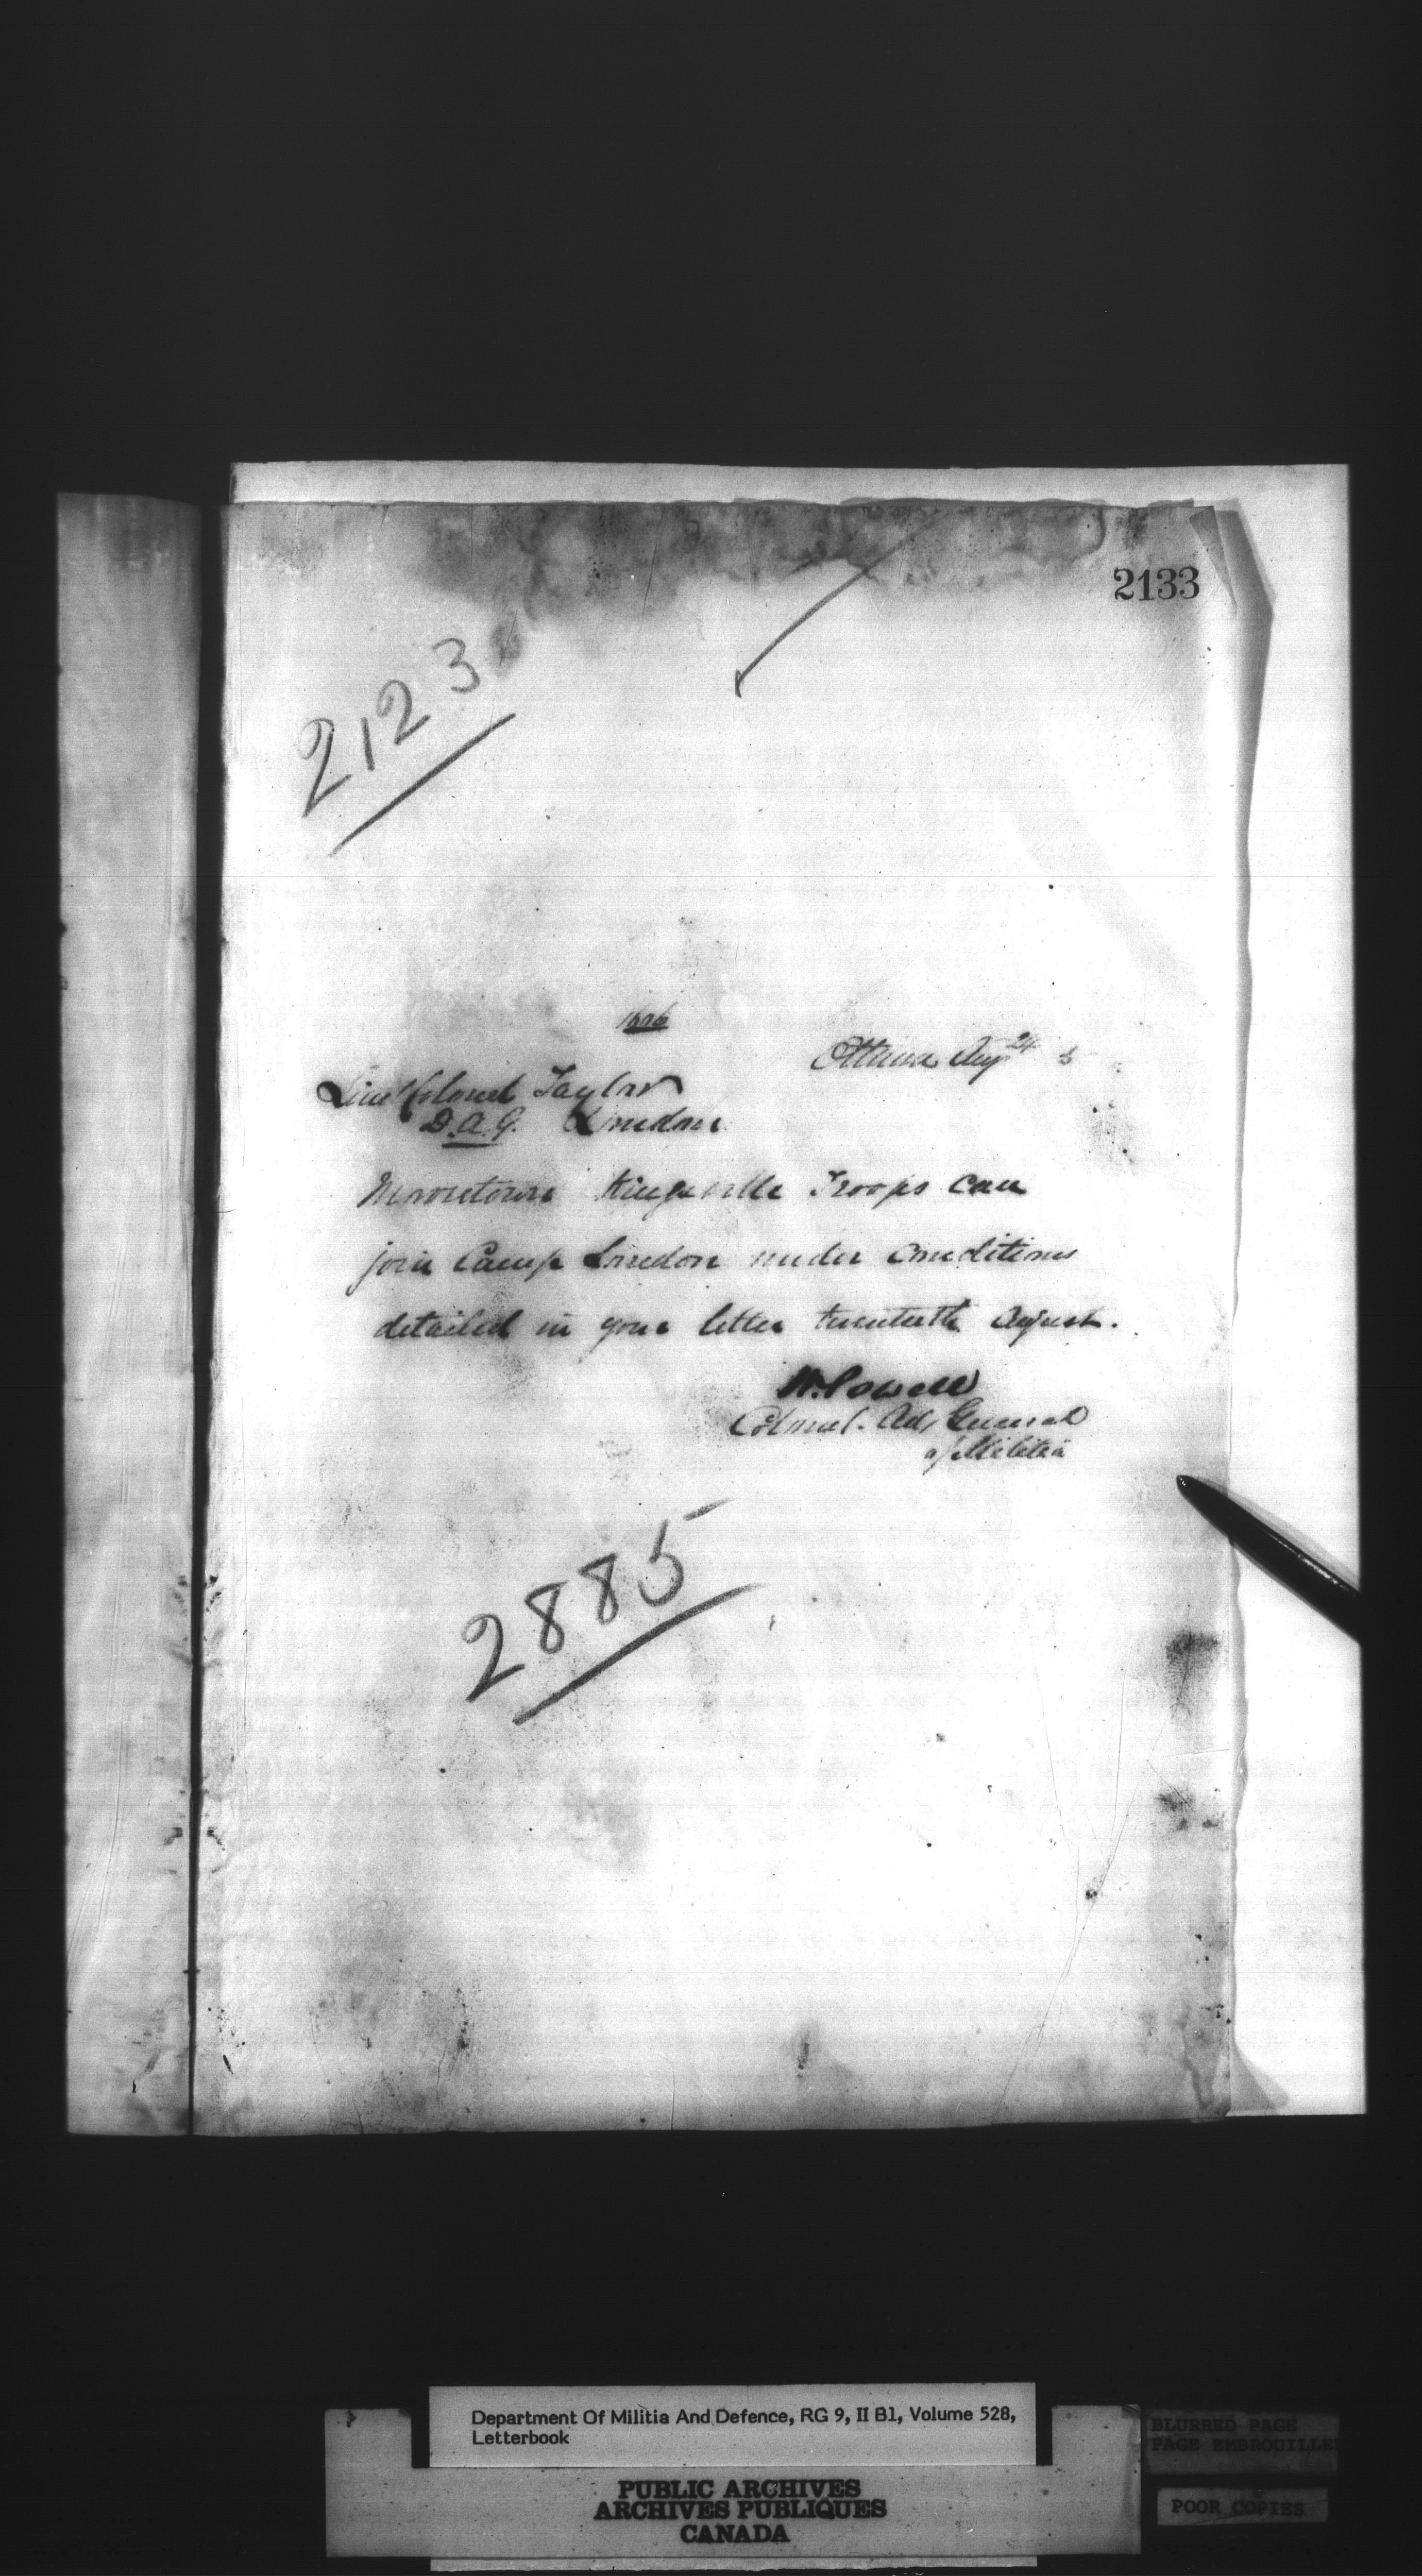 2133
2123
Ottawa Aug 24
Lieut Colonel Taylor
D.A.G. London
Kingsville Troops can
join Camp London under conditions
detailed in your letter twentieth August.
W. Powell
Colonel. Adj General
of Militia
2885
Department Of Militia And Defence, RG 9, II B1, Volume 528,
Letterbook
PUBLIC ARCHIVES
ARCHIVES PUBLIQUES
CANADA
BLURRED PAGE
PAGE EMBROUILLEE
POOR COPIES